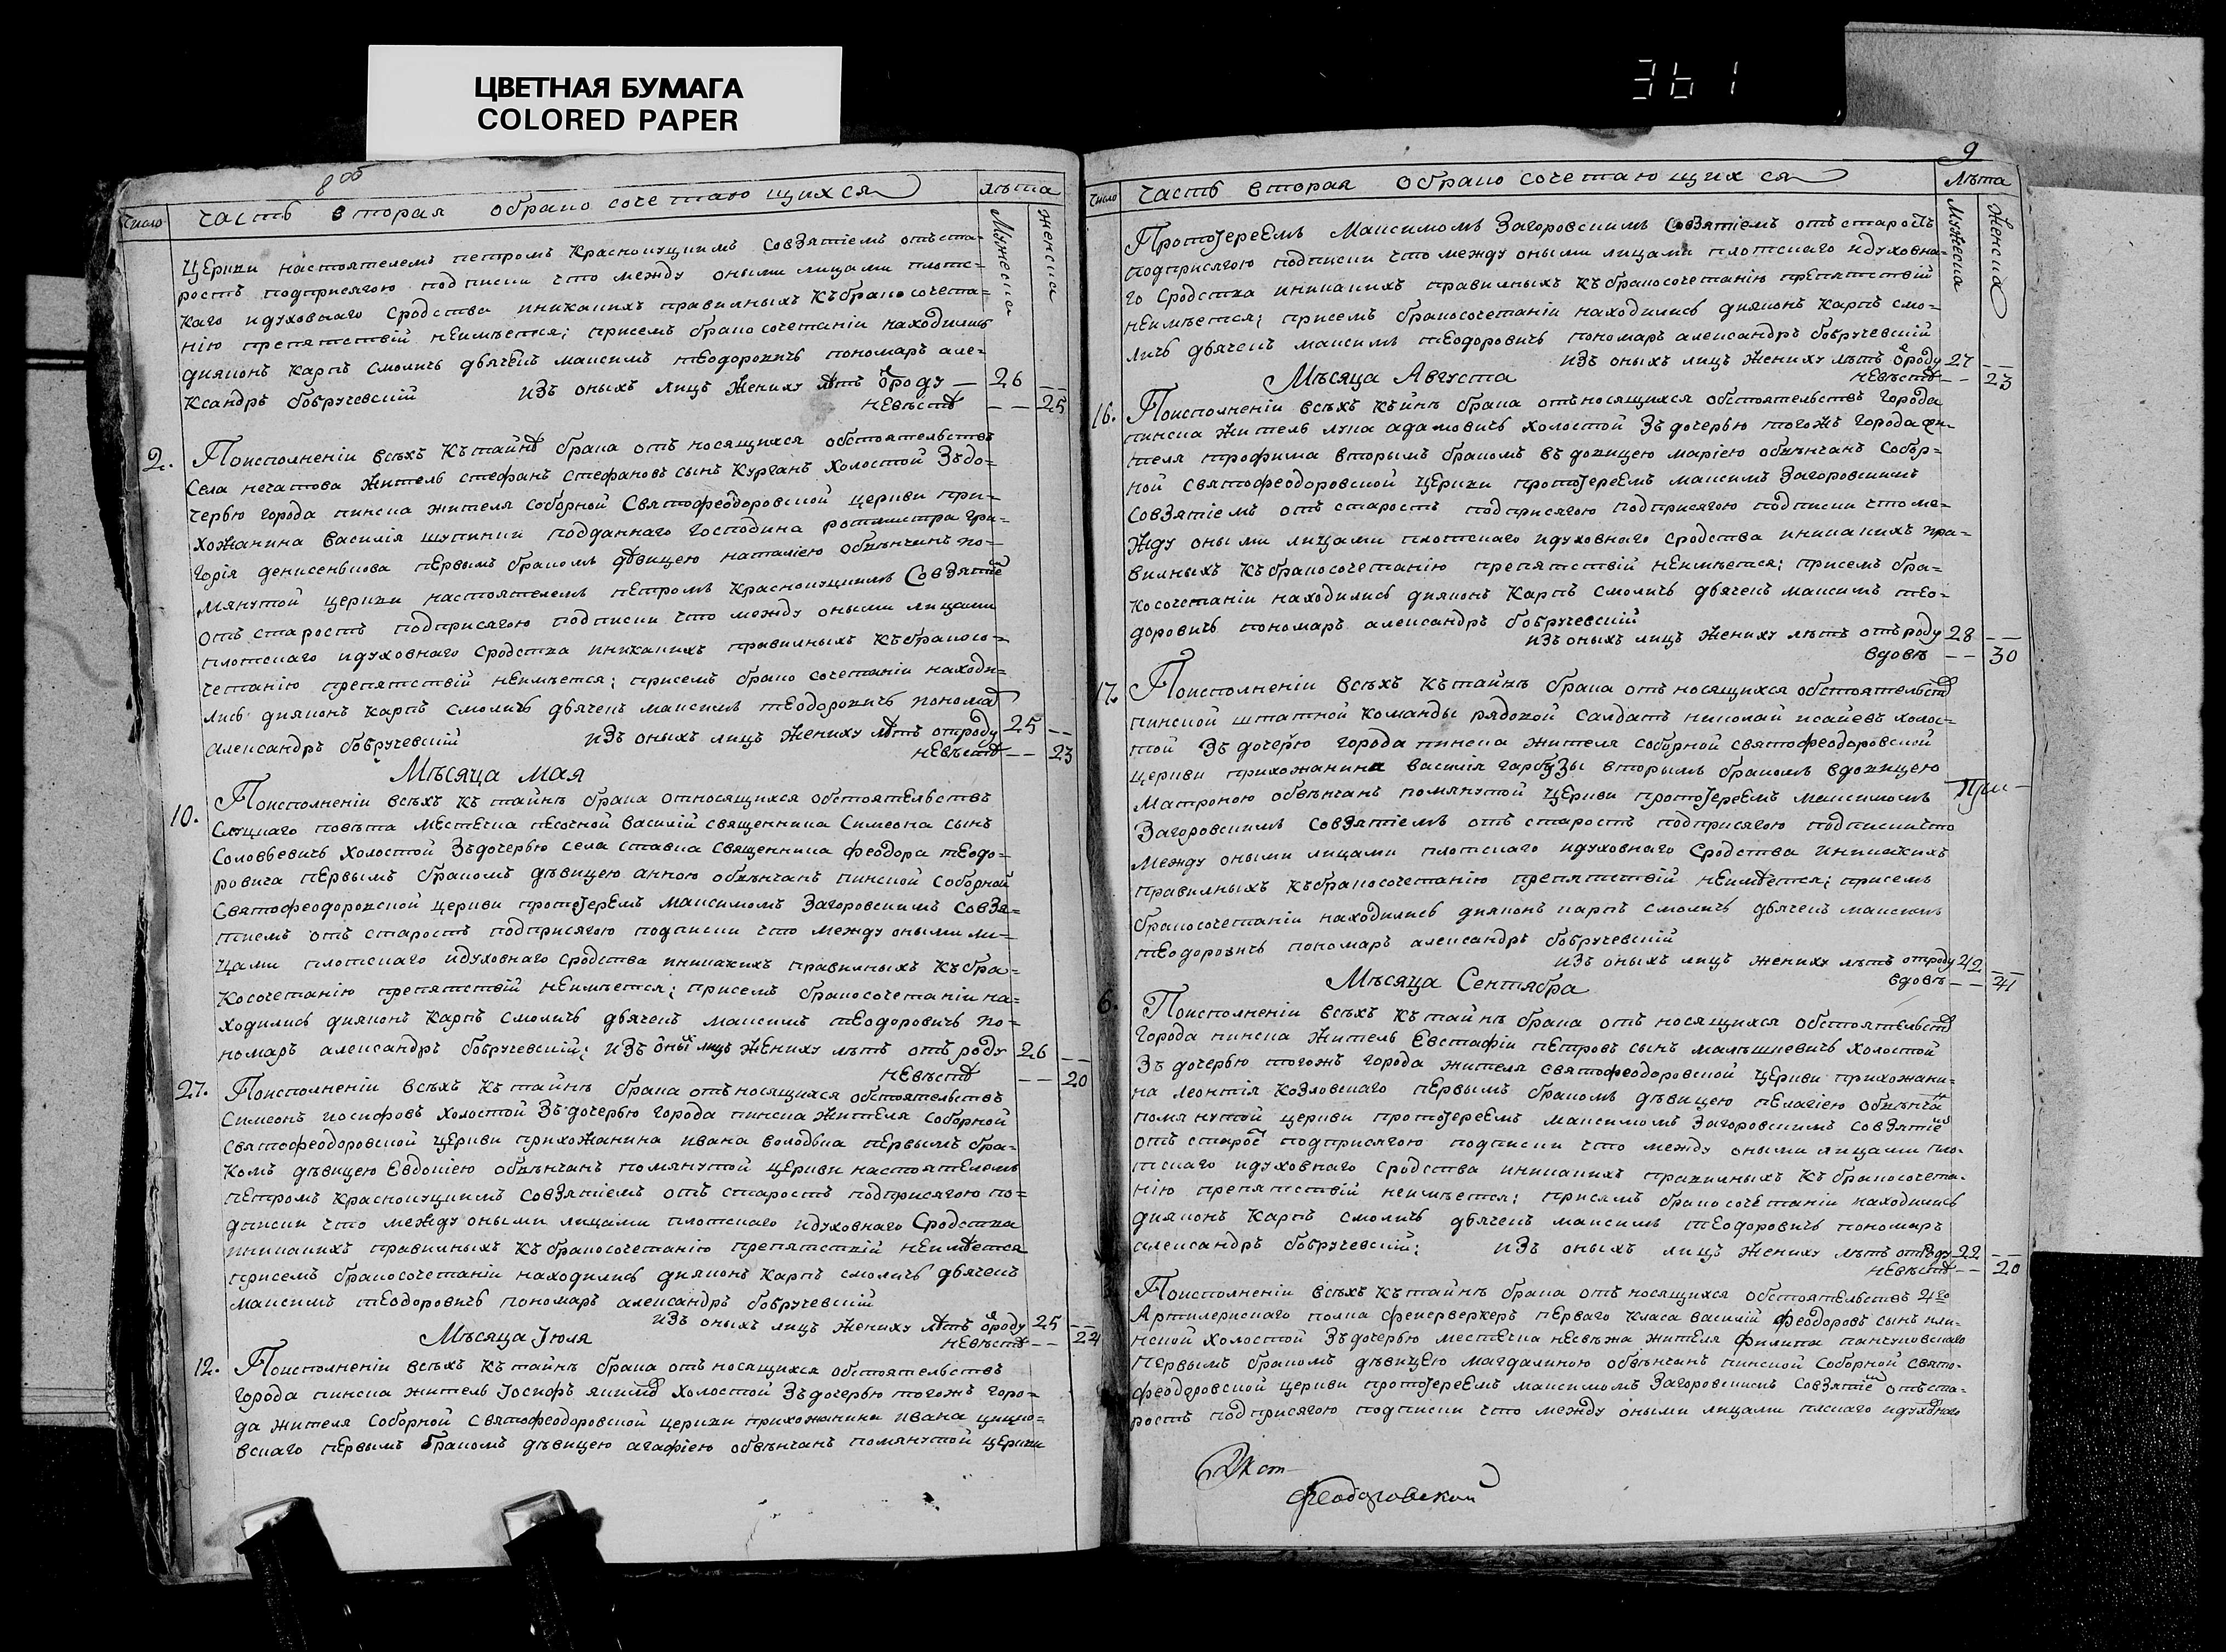 ЦВЕТНАЯ БУМАГА
COLORED PAPER
361
8 об
Число Часть вторая обрако сочетающихся Лѣта
Мужеска Женска
Церкви настоятелемъ петромъ Красноуцкимъ Совзятіемъ отъста-
ростъ подприсягою подписки что между оными лицами плотс-
каго идуховнаго Сродства иникакихъ правилныхъ Къбракосочета-
нію препятствій неимѣется; присемъ бракосочетаніи находились
дияконъ Карпъ Смоличъ двячекъ максимъ теодоровичъ пономаръ але-
Ксандръ бобручевскій изъ оныхъ лицъ Жениху лѣтъ ѿроду — 26 —
невѣстѣ — — 25
2. Поисполненіи всѣхъ Къ тайнѣ брака отъ носящихся обстоятельствъ
Села нечатова Житель стефанъ Стефановъ сынъ Курганъ Холостой Зъдо-
черью города пинска жителя Соборной Святофеодоровской церкви при-
хожанина Василія шупикии подданнаго Господина ротмистра гри-
горія денисенкова первымъ бракомъ дѣвицею наталіею обвѣнчанъ по-
мянутой церкви настоятелемъ петромъ Красноуцкимъ Совзятіе
отъ старостъ подприсягою подписки что между оными лицами
плотскаго идуховнаго Сродства иникакихъ правилныхъ Къбракосо-
четанію препятствій неимѣется; присемъ брако сочетаніи находи-
лись дияконъ Карпъ Смоличъ двячекъ максимъ теодоровичъ понома
александръ бобручевскій изъ оныхъ лицъ Жениху лѣтъ отроду 25 —
невѣстѣ — — 23
Мѣсяца Мая
10. Поисполненіи всѣхъ Къ тайнѣ брака относящихся обстоятельствъ
Слуцкаго повѣта местечка песочной Василій священника Симеона сынъ
Соловьевичъ Холостой Зъдочерью села ставка священника феодора теодо-
ровича первымъ бракомъ дѣвицею анною обвѣнчанъ пинской Соборной
Святофеодоровской церкви протоіереемъ Максимомъ Загоровскимъ Совзя-
тиемъ отъ старостъ подприсягою подписки что между оными ли-
цами плотскаго идуховнаго сродства иникакихъ правилныхъ Къбра-
Косочетанію препятствій неимѣется; присемъ бракосочетаніи на-
ходились дияконъ Карпъ Смоличъ двячекъ максимъ теодоровичъ по-
номаръ александръ бобручевскій; изъ оныхъ лицъ Жениху лѣтъ отъ роду 26 —
невѣстѣ — — 20
27. Поисполненіи всѣхъ Къ тайнѣ брака отъ носящихся обстоятельствъ
Симеонъ иосифовъ Холостой Зъдочерью города пинска Жителя Соборной
Святофеодоровской церкви прихожанина ивана володька первымъ бра-
Комъ дѣвицею Евдокіею обвѣнчанъ помянутой церкви настоятелемъ
петромъ Красноуцкимъ Совзятіемъ отъ старостъ подприсягою по-
дписки что между оными лицами плотскаго идуховнаго Сродства
иникакихъ правилныхъ Къбракосочетанію препятствій неимѣется
присемъ бракосочетаніи находились дияконъ Карпъ смоличъ двячекъ
максимъ теодоровичъ пономаръ александръ бобручевскій
изъ оныхъ лицъ Жениху лѣтъ ѿроду 25 —
Мѣсяца Іюля невѣстѣ — — 24
12. Поисполненіи всѣхъ Къ тайнѣ брака отъ носящихся обстоятельствъ
города пинска житель Іосифъ Холостой Зъдочерью тогожъ горо-
да Жителя Соборной Святофеодоровской церкви прихожанина ивана
вскаго первымъ бракомъ дѣвицею агафіею обвѣнчанъ помянутой церкви
9
Число Часть вторая обрако сочетающихся Лѣта
Мужеска Женска
Протоіереемъ Максимомъ Загоровскимъ Совзятіемъ отъстаростъ
подприсягою подписки что между оными лицами плотскаго идуховна-
го Сродства иникакихъ правилныхъ Къбракосочетанію препятствій
неимѣется; присемъ бракосочетаніи находились дияконъ Карпъ смо-
личъ двячекъ максимъ теодоровичъ пономаръ александръ бобручевскій
изъ оныхъ лицъ Жениху лѣтъ ѿроду 27 —
Мѣсяца Августа невѣстѣ — — 23
16. Поисполненіи всѣхъ Къйнѣ брака отъносящихся обстоятельствъ города
пинска Житель лука адамовичъ холостой Зъдочерью тогожъ города жи-
теля трофима вторымъ бракомъ въдовицею маріею обвѣнчанъ Собор-
ной Святофеодоровской церкви протоіереемъ максимъ Загоровскимъ
Совзятіемъ отъ старостъ подприсягою подприсягою подписки что ме-
Жду оными лицами плотскаго идуховнаго сродства иникакихъ пра-
вилныхъ Къбракосочетанію препятствій неимѣется; присемъ бра-
косочетаніи находились дияконъ Карпъ смоличъ двячекъ максимъ тео-
доровичъ пономаръ александръ бобручевскій
изъ оныхъ лицъ Жениху лѣтъ отъроду 28 —
вдовѣ — — 30
17. Поисполненіи всѣхъ Къ тайнѣ брака отъ носящихся обстоятельствъ
пинской штатной Команды рядовой Салдатъ николай исайевъ холос-
той Зъ дочерю города пинска жителя соборной святофеодоровской
церкви прихожанина василія гарбузы вторымъ бракомъ вдовицею
Матроною обвѣнчанъ помянутой церкви протоіереемъ максимомъ При-
Загоровскимъ Совзятіемъ отъ старостъ подприсягою подпискичто
между оными лицами плотскаго идуховнаго Сродства иникакихъ
правилныхъ Къбракосочетанію препятствій неимѣется; присемъ
бракосочетаніи находились дияконъ карпъ смоличъ двячекъ максимъ
теодоровичъ пономаръ александръ бобручевскій
изъ оныхъ лицъ жениху лѣтъ отроду 42 —
Мѣсяца Сентября вдовѣ — — 41
6. Поисполненіи всѣхъ Къ тайнѣ брака отъ носящихся обстоятельствъ
города пинска Житель Евстафіи петровъ сынъ малѣшкевичъ холостой
Зъ дочерью тогожъ города жителя святофеодоровской церкви прихожани-
на леонтія Козловскаго первымъ бракомъ дѣвицею пелагіею обвѣнча
помянутой церкви протоіереемъ максимомъ Загоровскимъ Совзятіе
отъ старос подприсягою подписки что между оными лицами пло-
тскаго идуховнаго сродства иникакихъ правилныхъ Къбракосочета-
нію препятствій неимѣется; присемъ бракосочетаніи находились
дияконъ Карпъ смоличъ двячекъ максимъ теодоровичъ пономаръ
александръ бобручевскій; изъ оныхъ лицъ Жениху лѣтъ отроду 22 —
невѣстѣ — — 20
Поисполненіи всѣхъ Къ тайнѣ брака отъ носящихся обстоятельствъ 4го
Артилерискаго полка феиерверкеръ перваго Класа василій феодоровъ сынъ
нской холостой Зъдочерью местечка несвѣжа жителя филипа панчуковскаго
первымъ бракомъ дѣвицею магдалиною обвѣнчанъ пинской Соборной свято-
феодоровской церкви протоіереемъ максимомъ Загоровскимъ Совзятіе отъста-
ростъ подприсягою подписки что между оными лицами плскаго идуховнаго
Феодоровской